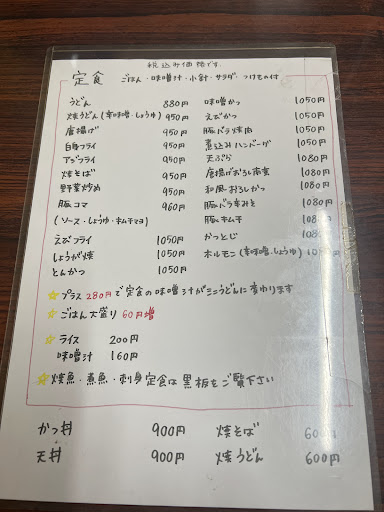 税込み価格です。
定食 ごはん・味噌汁・小鉢・サラダ・つけもの付
うどん 880円
焼うどん(辛味噌・しょうゆ) 950円
唐揚げ 950円
白身フライ 950円
アジフライ 950円
焼そば 950円
野菜炒め 950円
豚コマ 960円
(ソース・しょうゆ・キムチマヨ)
えびフライ 1050円
しょうが焼 1050円
とんかつ 1050円
味噌かつ 1050円
えびかつ 1050円
豚バラ焼肉 1050円
煮込みハンバーグ 1050円
天ぷら 1080円
唐揚げおろし南蛮 1080円
和風おろしかつ 1080円
豚バラ辛みそ 1080円
豚キムチ 1080円
かつとじ 1080円
ホルモン(辛味噌・しょうゆ)
☆プラス280円で定食の味噌汁がミニうどんに変わります
☆ごはん大盛り60円増
☆ライス 200円
味噌汁 160円
☆焼魚・煮魚・刺身定食は黒板をご覧下さい
かつ丼 900円 焼そば 600円
天丼 900円 焼うどん 600円